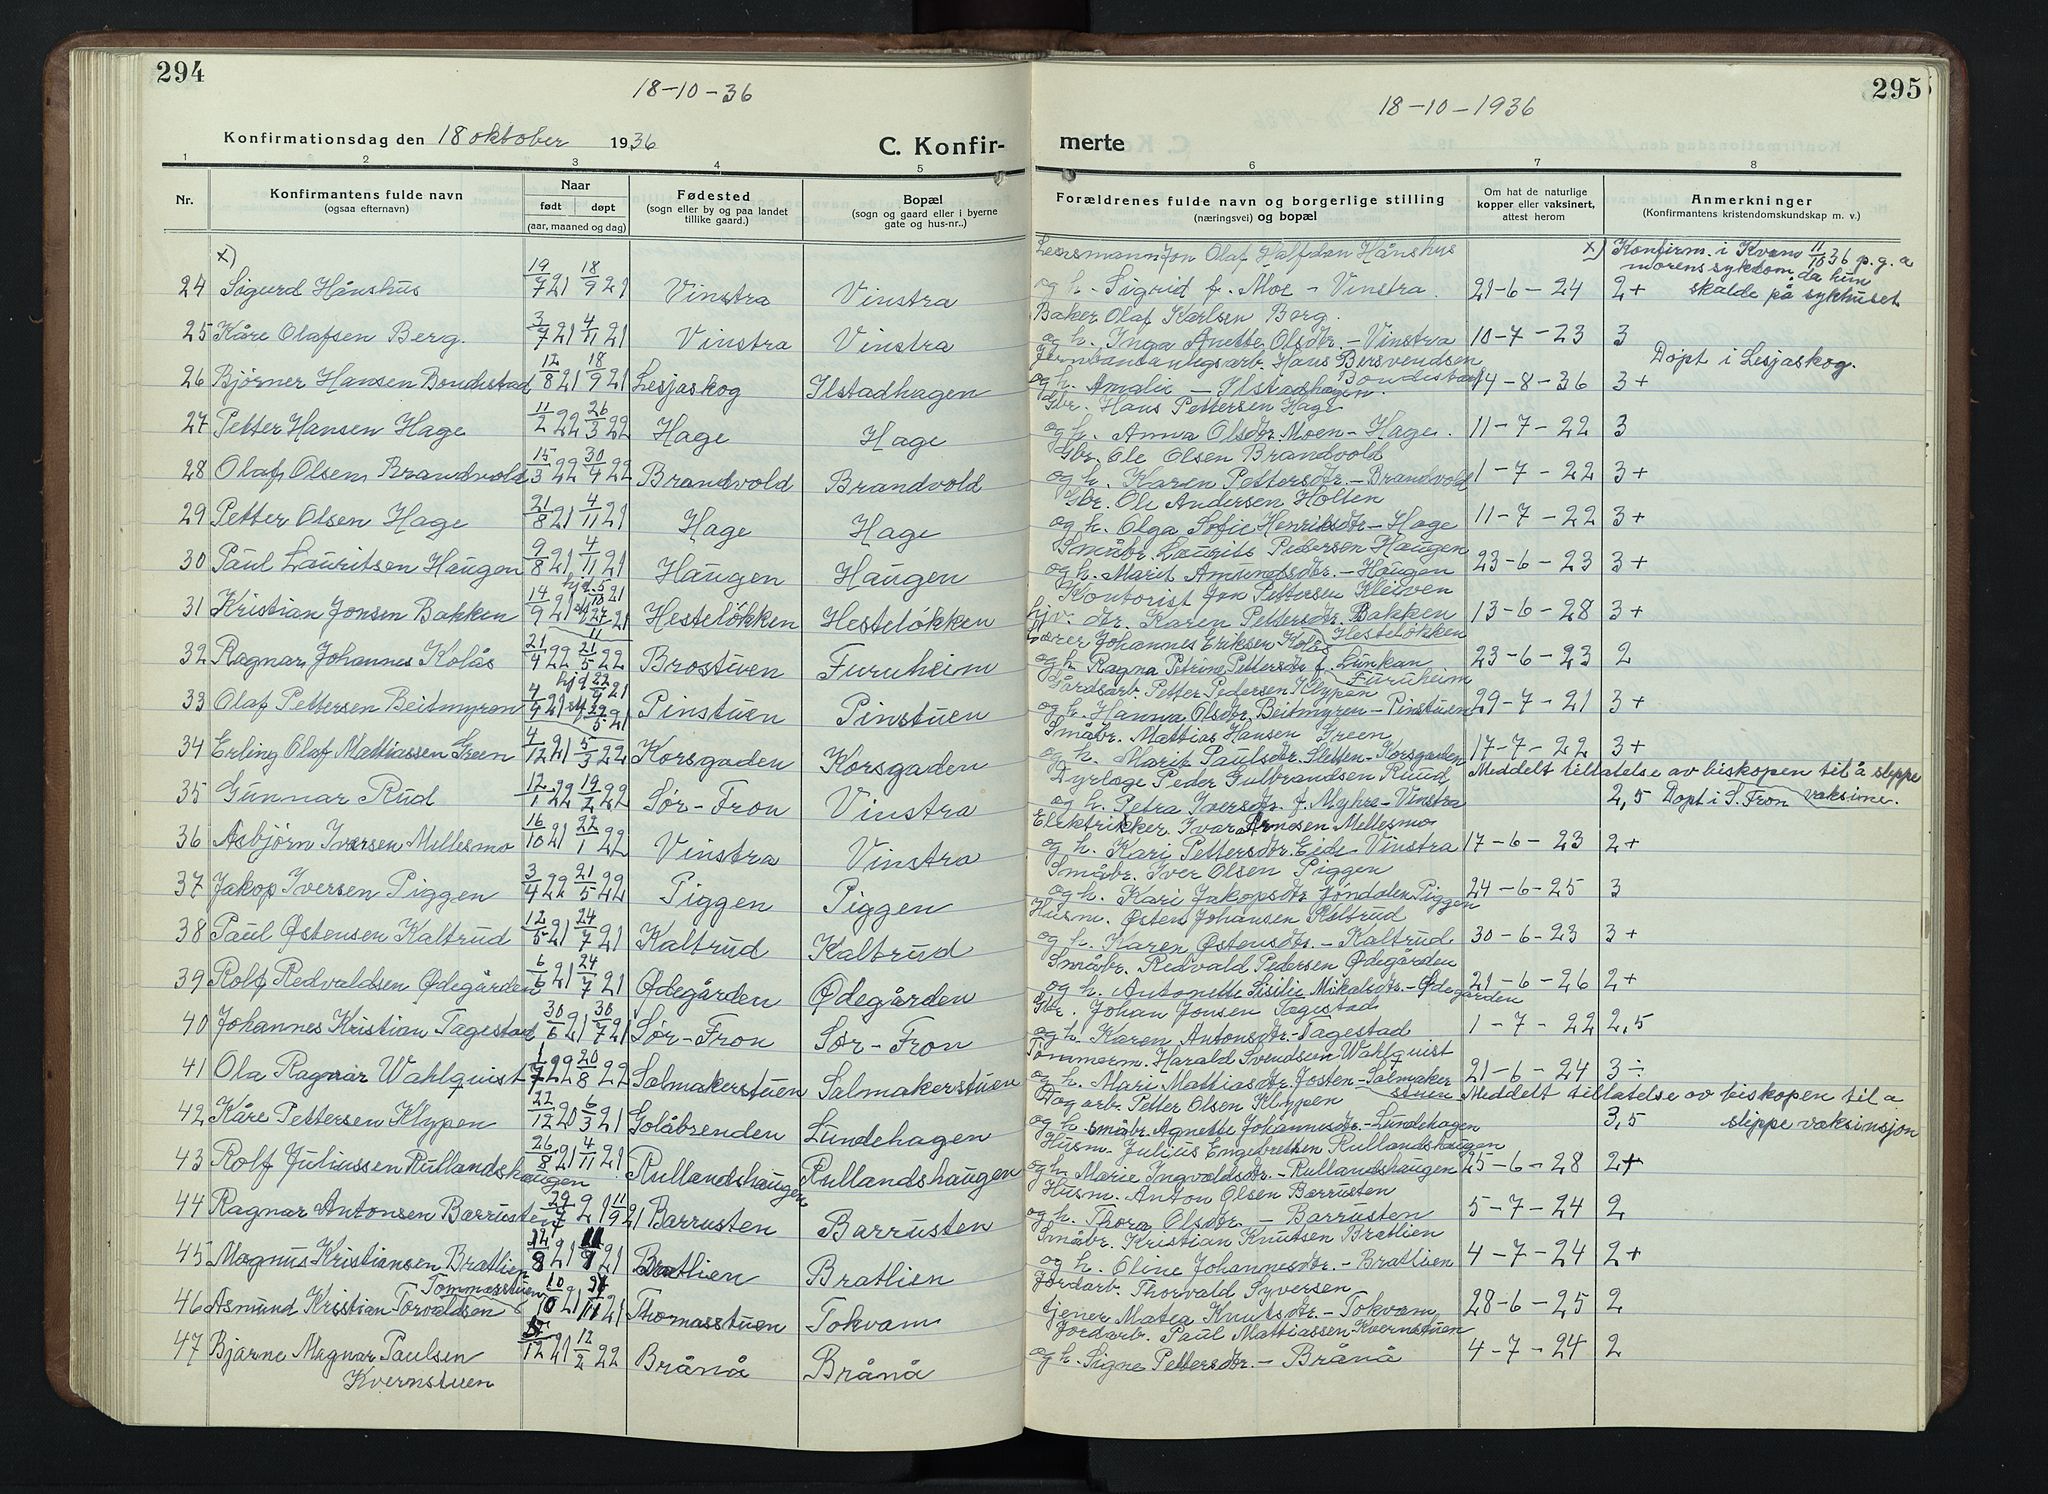 294
18-10-36
Konfirmationsdag den 18 oktober 1936
C. Konfir-
1 2 3 4 5
Nr.
Konfirmantens fulde navn
(ogsaa efternavn)
Naar
født døpt
(aar, maaned og dag)
Fødested
(sogn eller by og paa landet
tillike gaard.)
Bopæl
(sogn og gaard eller i byerne
gate og hus-nr..)
x)
24 Sigurd Hånshus 19/7 21 18/9 21 Vinstra Vinstra
25 Kåre Olafsen Berg. 3/7 21 4/11 21 Vinstra Vinstra
26 Bjørner Hansen Bondestad 12/8 21 18/9 21 Lesjaskog Ilstadhagen
27 Petter Hansen Hage 11/2 22 26/3 22 Hage Hage
28 Olaf Olsen Brandvold 15/3 22 30/4 22 Brandvold Brandvold
29 Petter Olsen Hage 21/8 21 4/11 21 Hage Hage
30 Paul Lauritsen Haugen 9/8 21 4/11 21 Haugen Haugen
31 Kristian Jonsen Bakken 14/9 21 hjd. 5/10 21 27/11 21 Hesteløkken Hesteløkken
32 Ragnar Johannes Kolås 21/4 22 21/5 22 Brostuen Furuheim
33 Olaf Pettersen Beitmyren 4/4 21 hjd 22/4 21 29/5 21 Pinstuen Pinstuen
34 Erling Olaf Mattiassen Green 4/12 21 5/3 22 Korsgaden Korsgaden
35 Gunnar Rud 12/1 22 19/2 22 Sør-Fron Vinstra
36 Asbjørn Iversen Mellesmo 16/10 21 22/1 22 Vinstra Vinstra
37 Jakop Iversen Piggen 3/4 22 21/5 22 Piggen Piggen
38 Paul Østensen Kaltrud 12/5 21 24/7 21 Kaltrud Kaltrud
39 Rolf Redvaldsen Ødegården 6/6 21 24/7 21 Ødegården Ødegården
40 Johannes Kristian Tagestad 30/6 21 30/7 21 Sør-Fron Sør-Fron
41 Ola Ragnar Wahlquist 1/7 22 20/8 22 Salmakerstuen Salmakerstuen
42 Kåre Pettersen Klypen 22/12 20 6/3 21 Golåbrenden Lundehagen
43 Rolf Juliussen Rullandshaugen 26/8 21 4/11 21 Rullandshaugen Rullandshaugen
44 Ragnar Antonsen Barrusten 29/7 21 11/9 21 Barrusten Barrusten
45 Magnus Kristiansen Bratlien 14/8 21 11/9 21 Bratlien Bratlien
Tommasstuen
46 Asmund Kristian Torvaldsen 10/10 21 11 21 Thomasstuen Tokvam
47 Bjarne Magnar Paulsen 12 21 12/2 22 Brånå Brånå
Kvernstuen
295
18-10-1936
merte
6 7 8
Forældrenes fulde navn og borgerlige stilling
(næringsvei) og bopæl
Om hat de naturlige
kopper eller vaksinert,
attest herom
Anmerkninger
(Konfirmantens kristendomskundskap m. v.)
Lensmann Jon Olaf Halfdan Hånshus x) Konfirm. i Kvam 11/10 36 p.g.a
morens sykdom, da hun
og h. Sigrid f. Moe - Vinstra. 21-6-24 2+ skulde på sykhuset
Baker Olaf Karlsen Berg.
og h. Inga Anette Olsdtr. - Vinstra 10-7-23 3
Jernbaneanlegsarb. Hans Bersvendsen Bondestad Døpt i Lesjaskog.
og h. Amalie - Ilstadhagen. 14-8-36 3+
Gbr. Hans Pettersen Hage
og h. Anna Olsdtr. Moen - Hage. 11-7-22 3
Gbr. Ole Olsen Brandvold
og h. Karen Pettersdtr. - Brandvold 1-7-22 3+
Gbr. Ole Andersen Holten
og h. Olga Sofie Henriksdtr - Hage 11-7-22 3+
Småbr. Laurits Pedersen Haugen
og h. Marit Amundsdtr. - Haugen 23-6-23 3+
Kontorist Jon Pettersen Kleiven
hjv. dtr. Karen Pettersdtr. Bakken 13-6-28 3+
Hesteløkken
Lærer Johannes Eriksen Kolås
og h. Ragna Petrine Pettersdtr f. Lunkan 23-6-23 2
Furuheim
Gårdsarb. Petter Pedersen Klypen
og h. Hanna Olsdtr. Beitmyren - Pinstuen 29-7-21 3+
Småbr. Mattias Hansen Green
og h. Marit Paulsdtr. Sletten - Korsgaden 17-7-22 3+
Dyrlæge Peder Gulbrandsen Ruud Meddelt tillatelse av biskopen til å sleppe
og h. Petra Iversdtr. f. Myhre - Vinstra 2,5 Døpt i S. Fron vaksine.
Elektrikker Ivar Arnesen Mellesmo
og h. Kari Pettersdtr. Eide - Vinstra 17-6-23 2+
Småbr. Iver Olsen Piggen
og h. Kari Jakopsdtr. Jøndalen Piggen 24-6-25 3
Husm. Østen Johansen Kaltrud
og h. Karen Østensdtr. - Kaltrud 30-6-23 3+
Småbr. Redvald Pedersen Ødegården
og h. Antonette Sisilie Mikaldtr. - Ødegården 21-6-26 2+
Gbr. Johan Jonsen Tagestad
og h. Karen Antonsdtr - Tagestad 1-7-22 2,5
Tømmerm. Harald Svendsen Wahlquist
og h. Mari Mattiasdtr. Josten - Salmakerstuen 21-6-24 3÷
Dagarb. Petter Olsen Klypen Meddelt tillatelse av biskopen til a
og h. småbr. Agnette Johannesdtr. - Lundehagen 3,5 sleppe vaksinsjon
Husm. Julius Engebretsen Rullandshaugen
og h. Marie Ingvaldsdtr. - Rullandshaugen 25-6-28 2+
Husm. Anton Olsen Barrusten
og h. Thora Olsdtr. - Barrusten 5-7-24 2
Småbr. Kristian Knutsen Bratlien
og h. Oline Johannesdtr. - Bratlien 4-7-24 2+
Jordarb. Thorvald Syversen
tjener Matea Knutsdtr. - Tokvam 28-6-25 2
Jordarb. Paul Mattiassen Kvernstuen
og h. Signe Pettersdtr. - Brånå 4-7-24 2